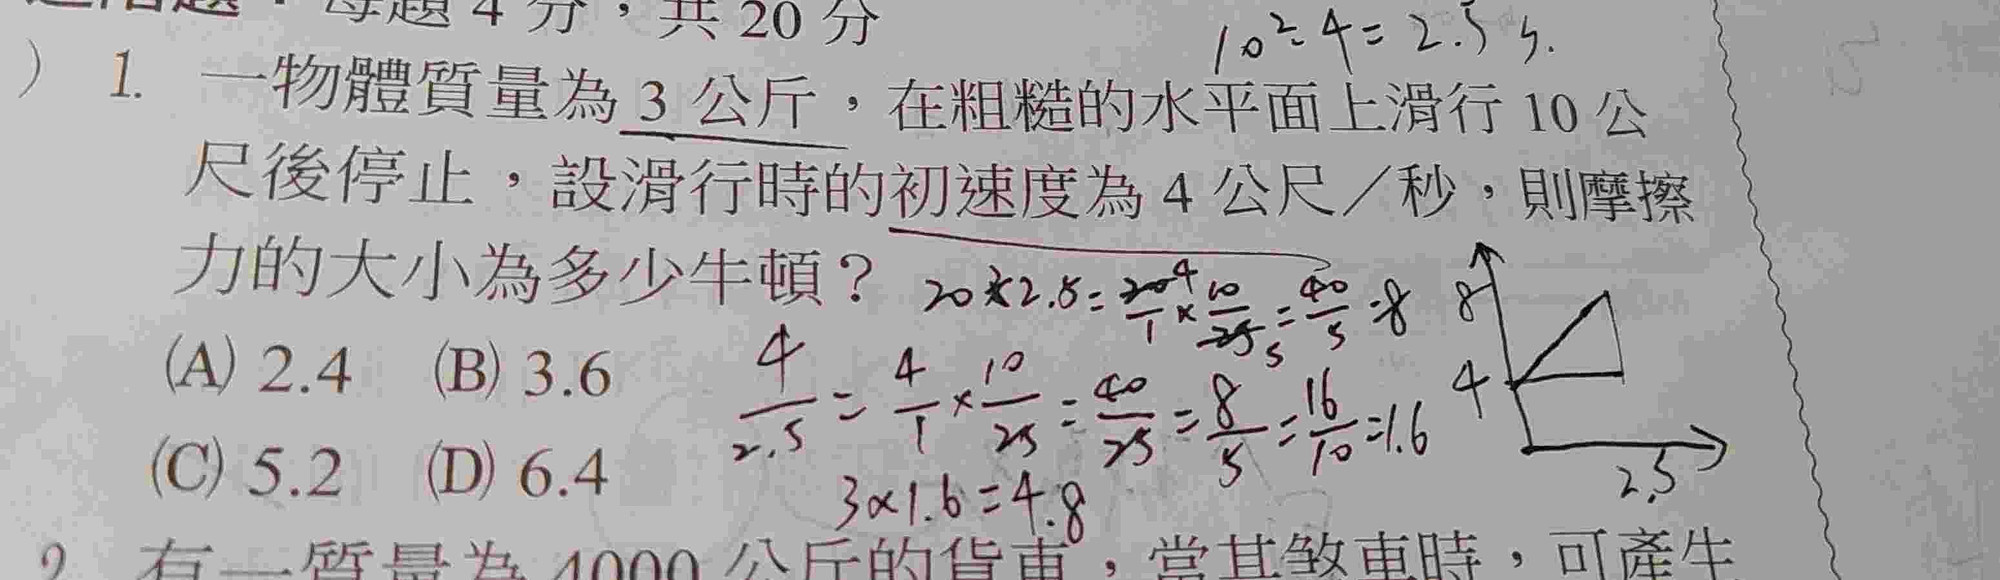 每題 4 分，共 20 分
10÷4=2.5 s.
) 1. 一物體質量為 3 公斤，在粗糙的水平面上滑行 10 公
尺後停止，設滑行時的初速度為 4 公尺／秒，則摩擦
力的大小為多少牛頓？
20×2.5=20/1×10/25=40/5=8
(A) 2.4 (B) 3.6
4/2.5=4/1×10/25=40/25=8/5=16/10=1.6
8
4
2.5
(C) 5.2 (D) 6.4
3×1.6=4.8
2. 有一質量為 4000 公斤的貨車，當其煞車時，可產生